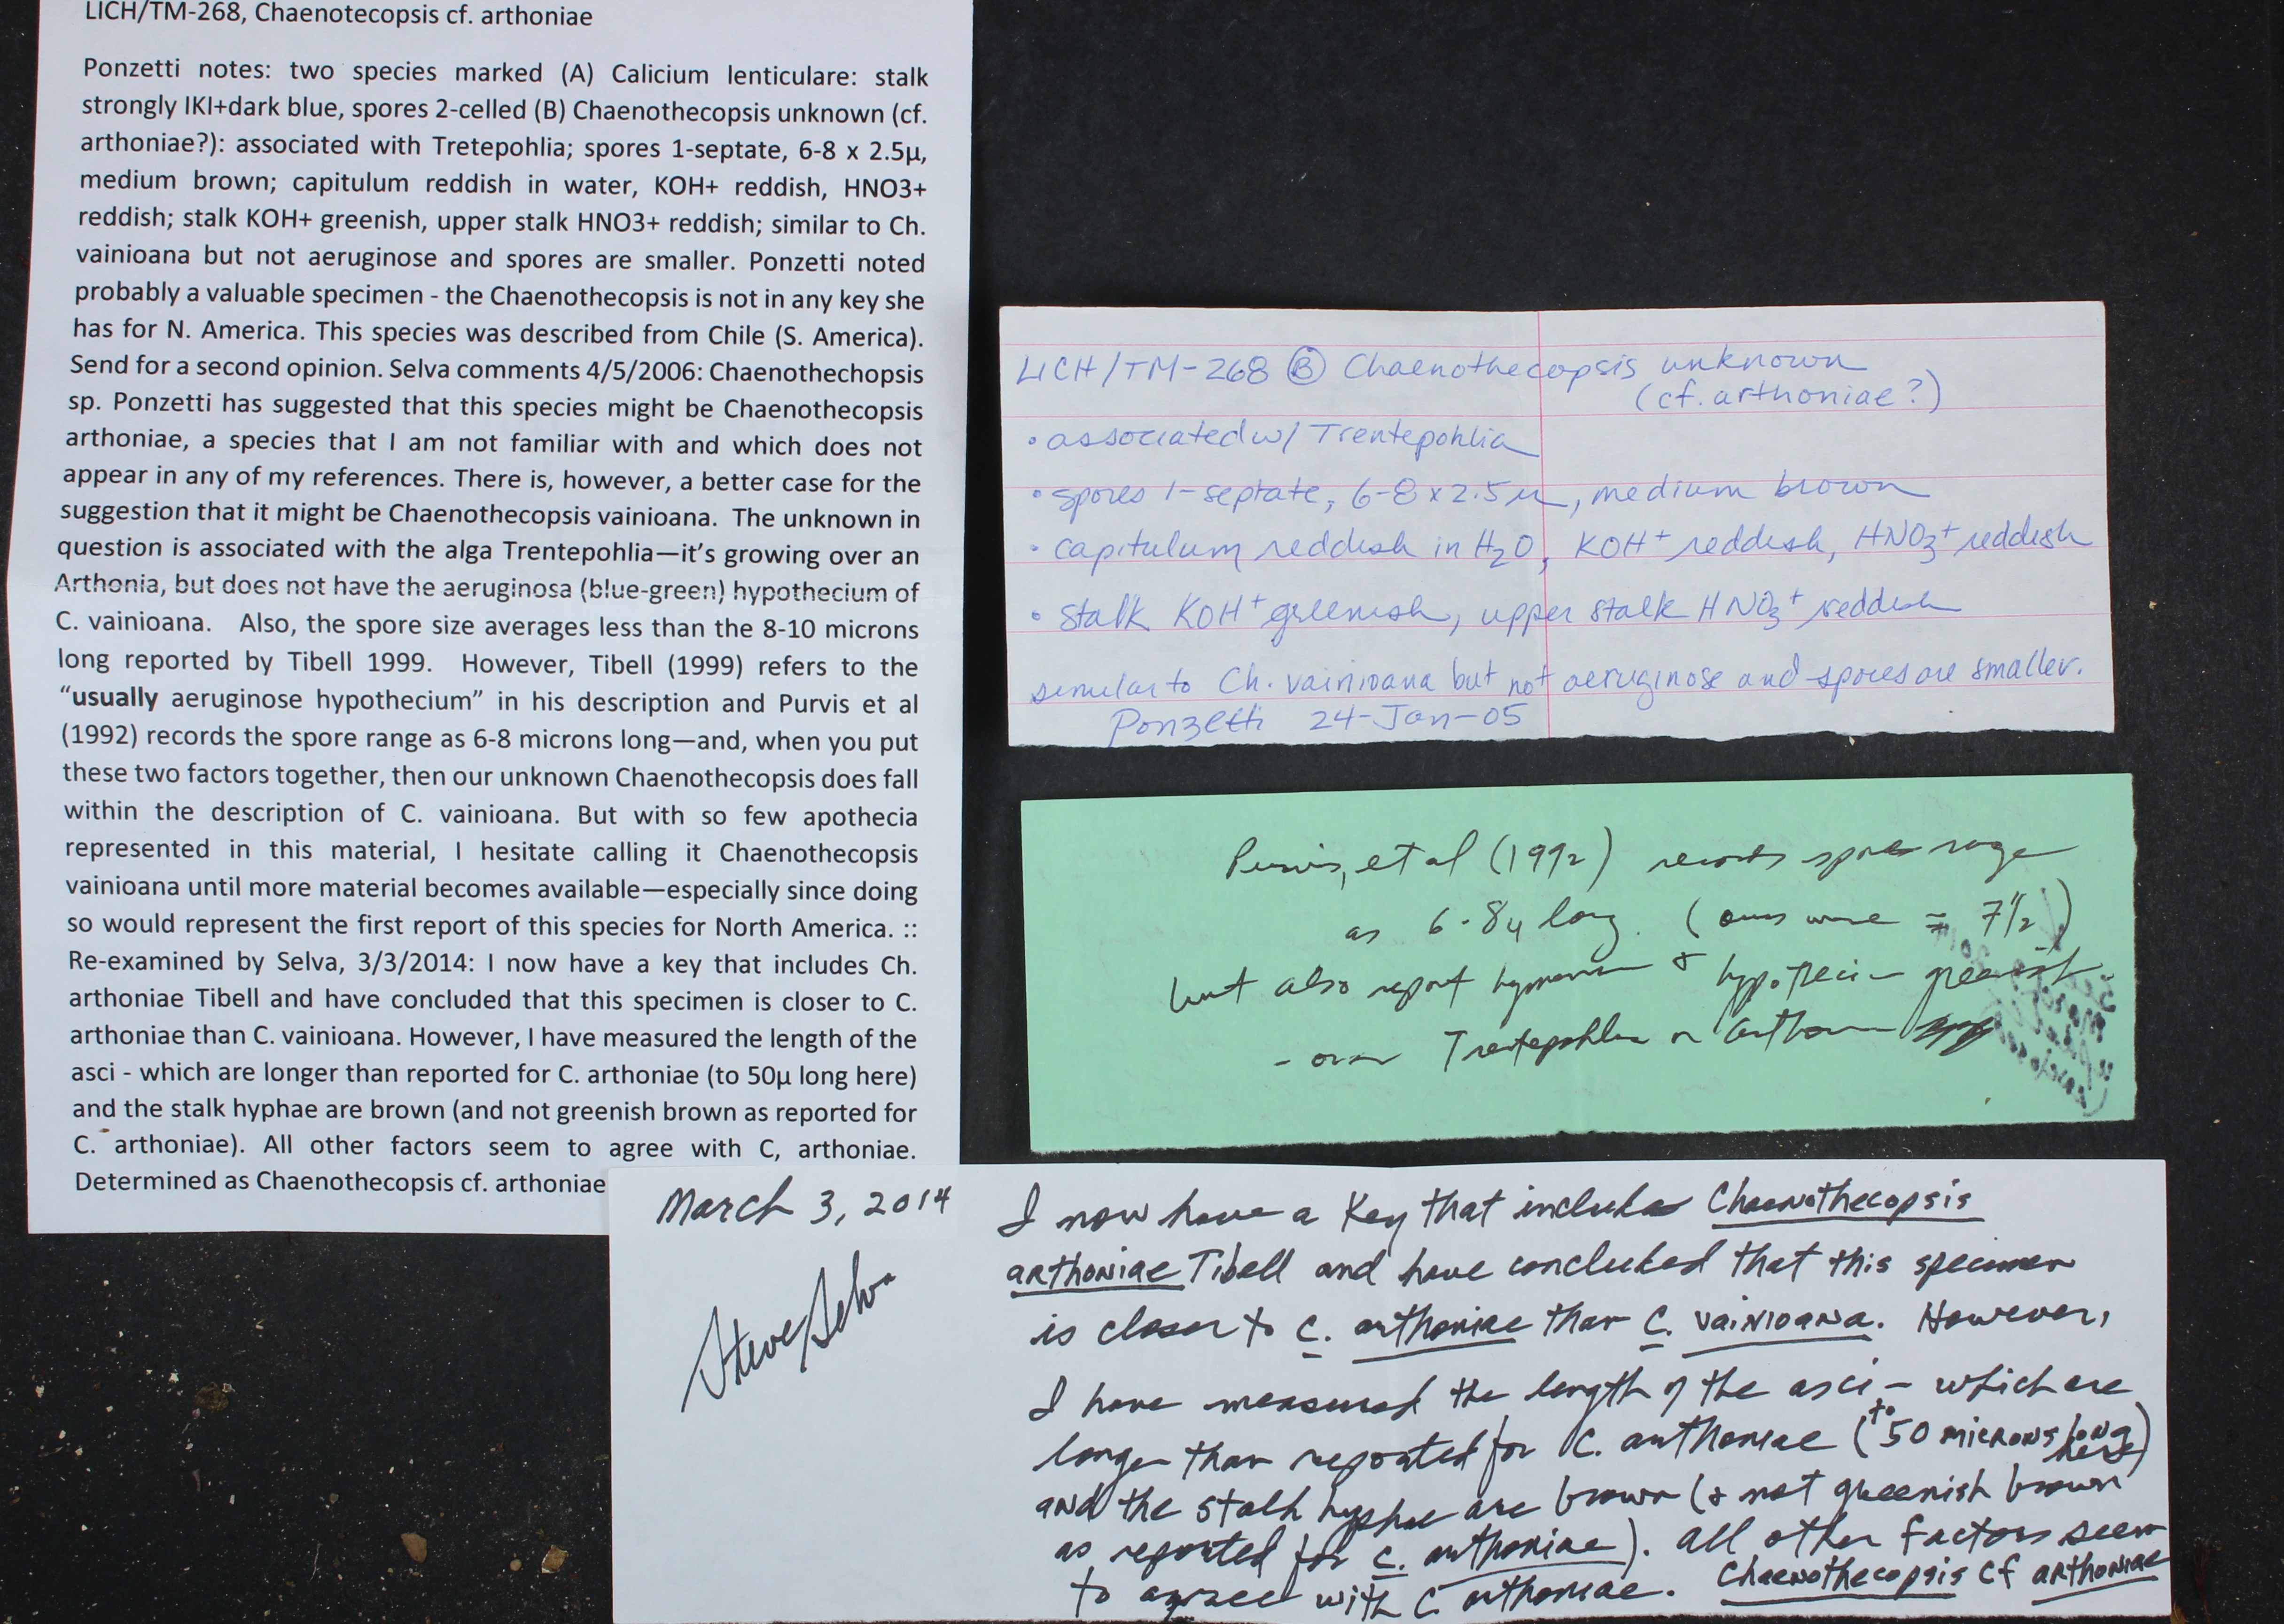 LICH/TM-268, Chaenotecopsis cf. arthoniae
Ponzetti notes: two species marked (A) Calicium lenticulare: stalk
strongly IKI+dark blue, spores 2-celled (B) Chaenothecopsis unknown (cf.
arthoniae?): associated with Tretepohlia; spores 1-septate, 6-8 x 2.5µ,
medium brown; capitulum reddish in water, KOH+ reddish, HNO3+
reddish; stalk KOH+ greenish, upper stalk HNO3+ reddish; similar to Ch.
vainioana but not aeruginose and spores are smaller. Ponzetti noted
probably a valuable specimen - the Chaenothecopsis is not in any key she
has for N. America. This species was described from Chile (S. America).
Send for a second opinion. Selva comments 4/5/2006: Chaenothechopsis
sp. Ponzetti has suggested that this species might be Chaenothecopsis
arthoniae, a species that I am not familiar with and which does not
appear in any of my references. There is, however, a better case for the
suggestion that it might be Chaenothecopsis vainioana. The unknown in
question is associated with the alga Trentepohlia—it's growing over an
Arthonia, but does not have the aeruginosa (blue-green) hypothecium of
C. vainioana. Also, the spore size averages less than the 8-10 microns
long reported by Tibell 1999. However, Tibell (1999) refers to the
“usually aeruginose hypothecium” in his description and Purvis et al
(1992) records the spore range as 6-8 microns long—and, when you put
these two factors together, then our unknown Chaenothecopsis does fall
within the description of C. vainioana. But with so few apothecia
represented in this material, I hesitate calling it Chaenothecopsis
vainioana until more material becomes available—especially since doing
so would represent the first report of this species for North America. ::
Re-examined by Selva, 3/3/2014: I now have a key that includes Ch.
arthoniae Tibell and have concluded that this specimen is closer to C.
arthoniae than C. vainioana. However, I have measured the length of the
asci - which are longer than reported for C. arthoniae (to 50µ long here)
and the stalk hyphae are brown (and not greenish brown as reported for
C. arthoniae). All other factors seem to agree with C, arthoniae.
Determined as Chaenothecopsis cf. arthoniae
LICH/TM-268 Ⓑ Chaenothecopsis unknown
(cf. arthoniae?)
• associated w/ Trentepohlia
• spores 1-septate, 6-8 x 2.5 µ, medium brown
• capitulum reddish in H2O, KOH+ reddish, HNO3+ reddish
• stalk KOH+ greenish, upper stalk HNO3+ reddish
similar to Ch. vainioana but not aeruginose and spores are smaller.
Ponzetti 24-Jan-05
Purvis, et al (1992) records spore range
as 6-8µ long. (ours were ≈ 7½)
but also report hymenium & hypothecium greenish
- over Trentepohlia or Arthonia
March 3, 2014
Steve Selva
I now have a Key that includes Chaenothecopsis
arthoniae Tibell and have concluded that this specimen
is closer to C. arthoniae than C. vainioana. However,
I have measured the length of the asci - which are
longer than reported for C. arthoniae (to 50 microns long here)
and the stalk hyphae are brown (& not greenish brown
as reported for C. arthoniae). All other factors seem
to agree with C arthoniae. Chaenothecopsis cf arthoniae